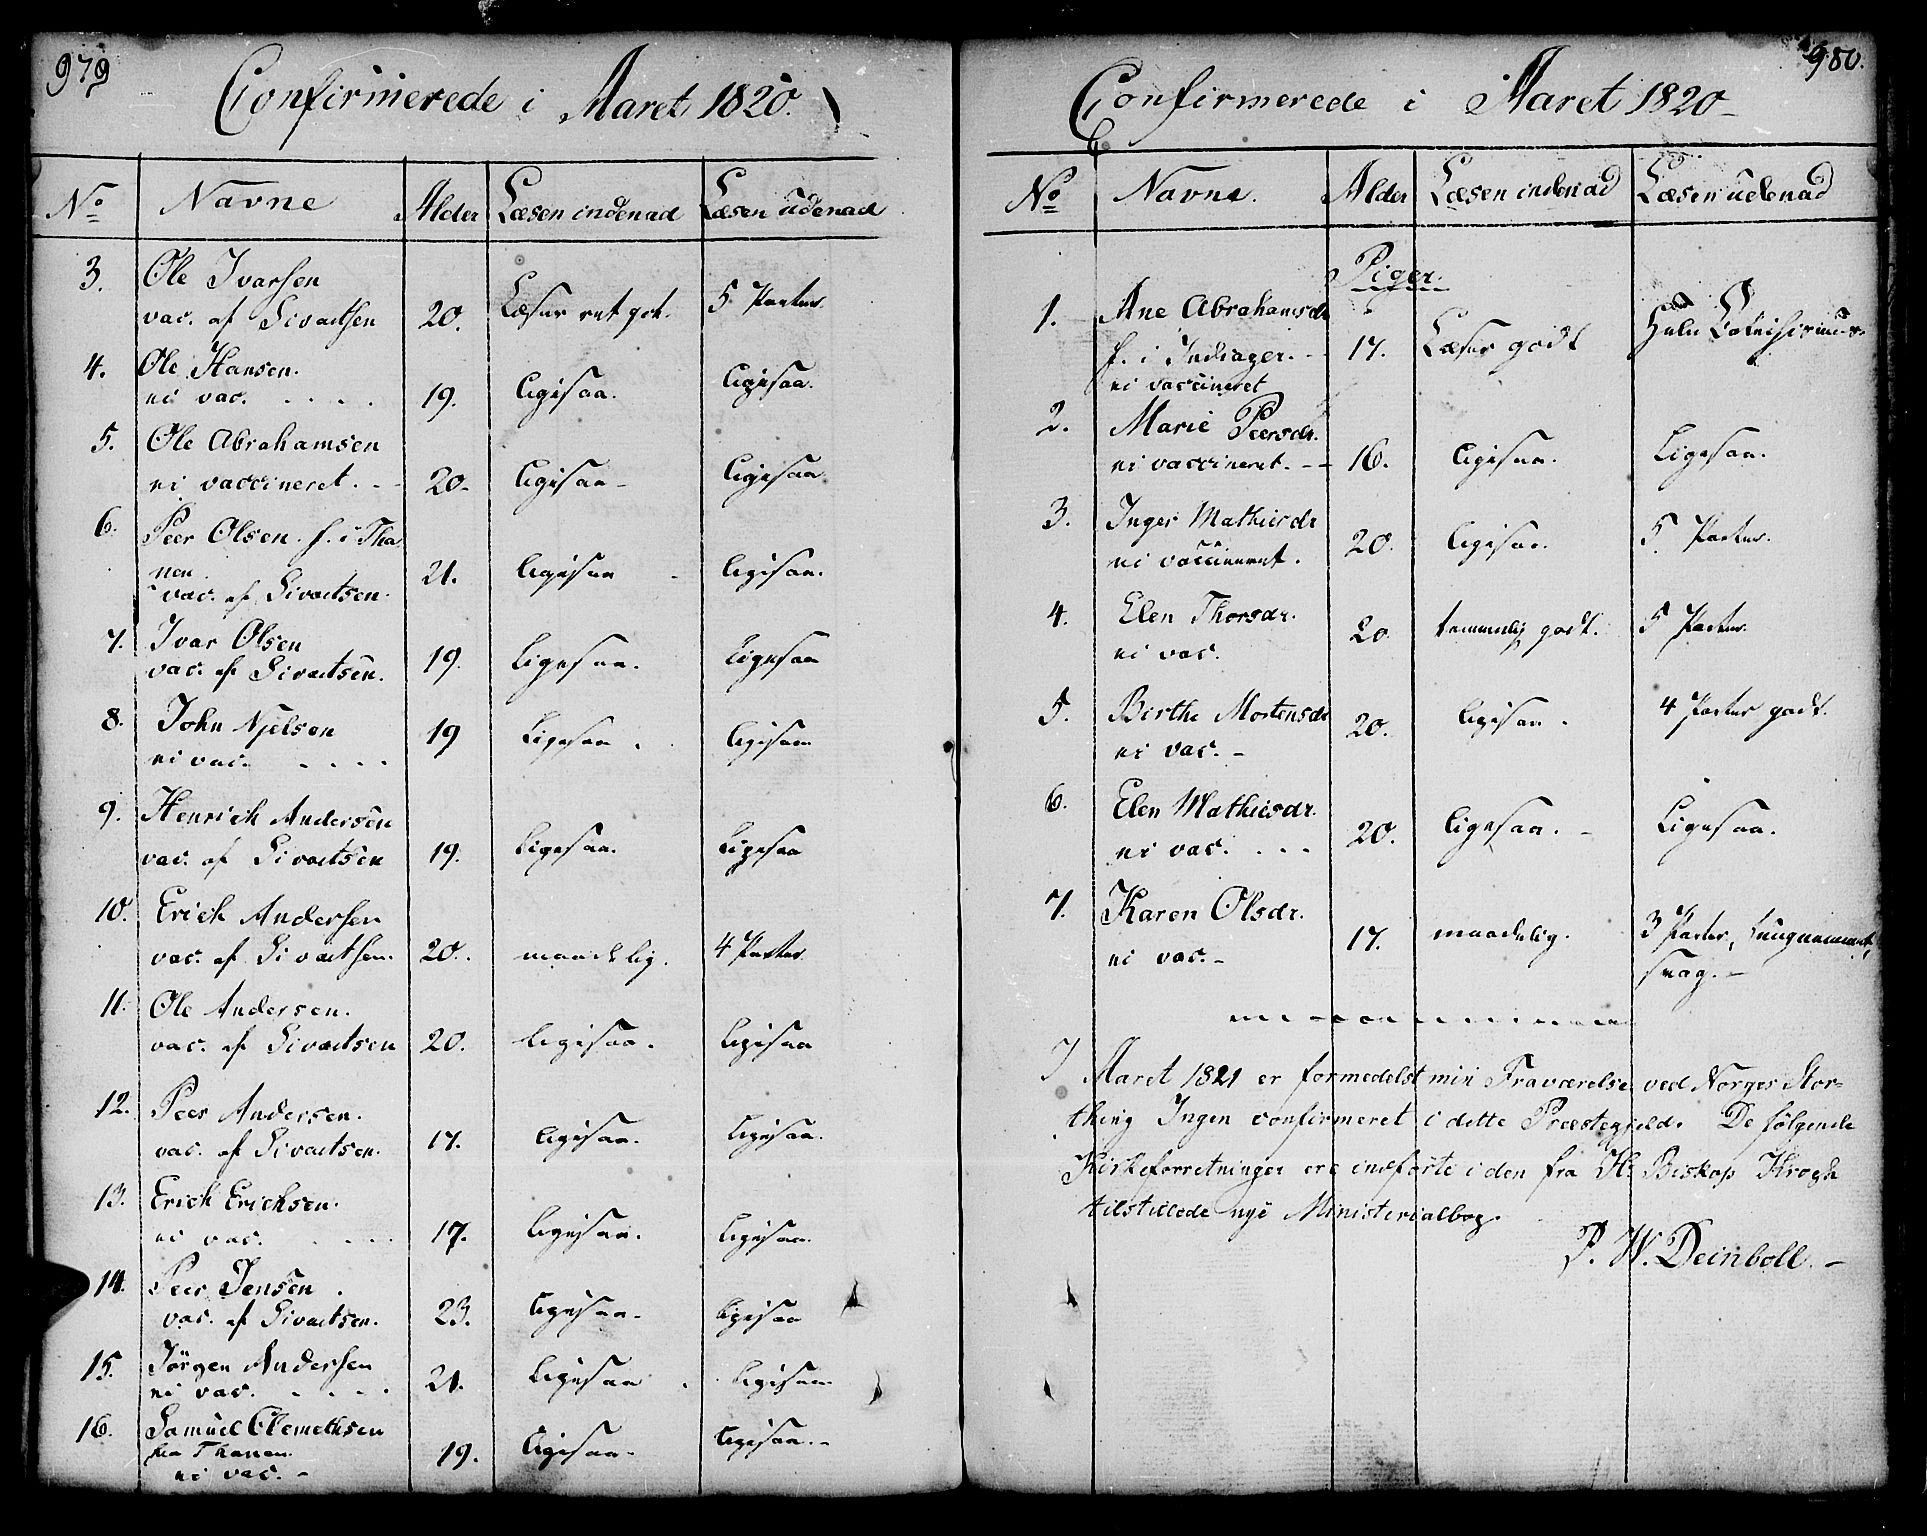 979
Confirmerede i Aaret 1820.
No Navne Alder Læsen indenad Læsen udenad
3. Ole Ivarsen
vac. af Sivertsen 20. Læser ret got. 5 Parter.
4. Ole Hansen.
ei vac. . . . . 19. Ligesaa. Ligesaa.
5. Ole Abrahamsen
ei vaccineret. - - 20. Ligesaa - Ligesaa.
6. Peer Olsen. f. i Tha-
nen
vac. af Sivertsen. 21. Ligesaa Ligesaa.
7. Ivar Olsen
vac. af Sivertsen. 19. Ligesaa. Ligesaa
8. John Njelsen
ei vac. . . . . 19 Ligesaa. Ligesaa
9. Henrich Andersen
vac. af Sivertsen 19. Ligesaa. Ligesaa
10. Erich Andersen
vac. af Sivertsen. 20. maadelig. 4 Parter
11. Ole Andersen.
vac. af Sivertsen 20. Ligesaa. Ligesaa
12. Peer Andersen.
vac. af Sivertsen. 17. Ligesaa. Ligesaa.
13. Erich Erichsen.
ei vac. . . . 17. Ligesaa. Ligesaa.
14. Peer Jensen.
vac. af Sivertsen. 23. Ligesaa. Ligesaa
15. Jörgen Andersen
ei vac. . . . . 21. Ligesaa. Ligesaa.
16. Samuel Clemethsen
fra Thanen.
ei vac. - 19. Ligesaa. Ligesaa. -
980.
Confirmerede i Aaret 1820
No Navne. Alder Læsen indenad Læsen udenad
Piger.
1. Ane Abrahamsdr
f. i Indiager. - -
ei vaccineret 17. Læser godt Hele
2. Marie Peersdr.
ei vaccineret. - - 16. Ligesaa. Ligesaa.
3. Inger Mathiesdr
ei vaccineret. 20. Ligesaa. 5 Parter.
4. Elen Thorsdr.
ei vac. 20. temmelig godt. 5 Parter.
5. Birthe Mortensdr
ei vac. - 20. Ligesaa. 4 Parter godt.
6. Elen Mathiesdr.
ei vac. . . . 20. Ligesaa. - Ligesaa.
7. Karen Olsdr.
ei vac. - 17. maadelig. 3 Parter,
svag. -
I Aaret 1821 er formedelst min Fraværelse ved Norges Stor-
thing Ingen confirmeret i dette Præstegield. De følgende
Kirkeforretninger ere indførte i den fra Hr Biskop Krogh
tilstillede nye Ministerialbog.
P. W. Deinboll. -